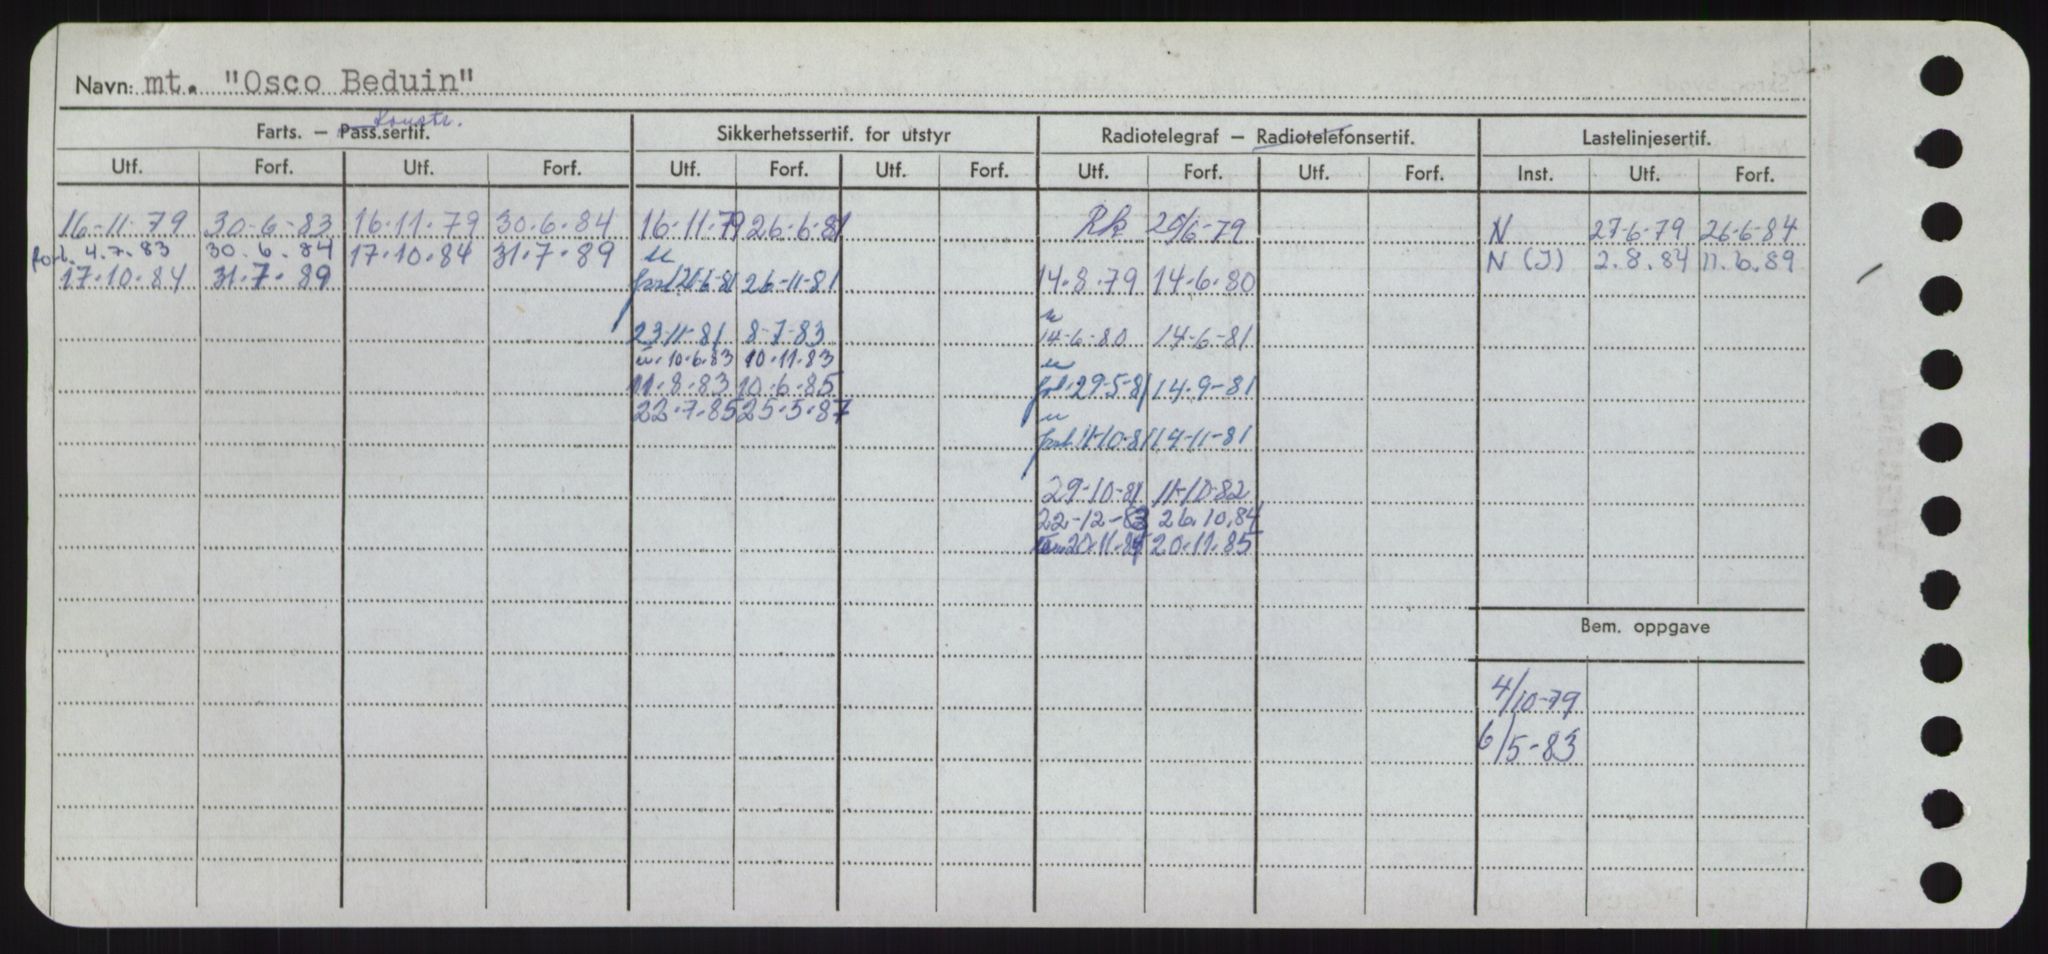 Navn: mt. "Osco Beduin"
Konstr.
Farts. – Pass.sertif. Sikkerhetssertif. for utstyr Radiotelegraf – Radiotelefonsertif. Lastelinjesertif.
Utf. Forf. Utf. Forf. Utf. Forf. Utf. Forf. Utf. Forf. Utf. Forf. Inst. Utf. Forf.
16-11-79 30-6-83 16.11.79 30.6.84 16-11-79 26-6-81 20/6-79 N 27-6-79 26.6.84
forl. 4.7.83 30.6.84 17.10.84 31.7.89 N (J) 2.8.84 11.6.89
17.10.84 31.7.89 26-11-81 14.8.79 14.6.80
23-11-81 8-7-83 14-6-80 14-6-81
10.6.83 10.11.83
11.8.83 10.6.85 29-5-81 14-9-81
22.7.85 25.5.87
11-10-81 14-11-81
29-10-81 11-10-82
22-12-83 26.10.84
20.11.85
Bem. oppgave
4/10-79
6/5-83